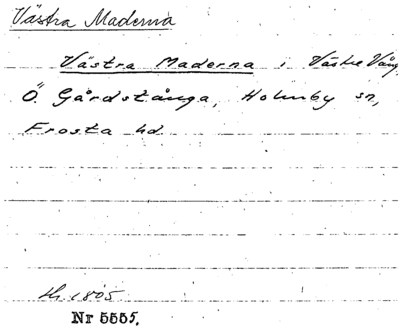 Västra Maderna
Västra Maderna i Västre Vång
Ö. Gårdstånga, Holmby sn,
Frosta hd
1805
Nr 5555.